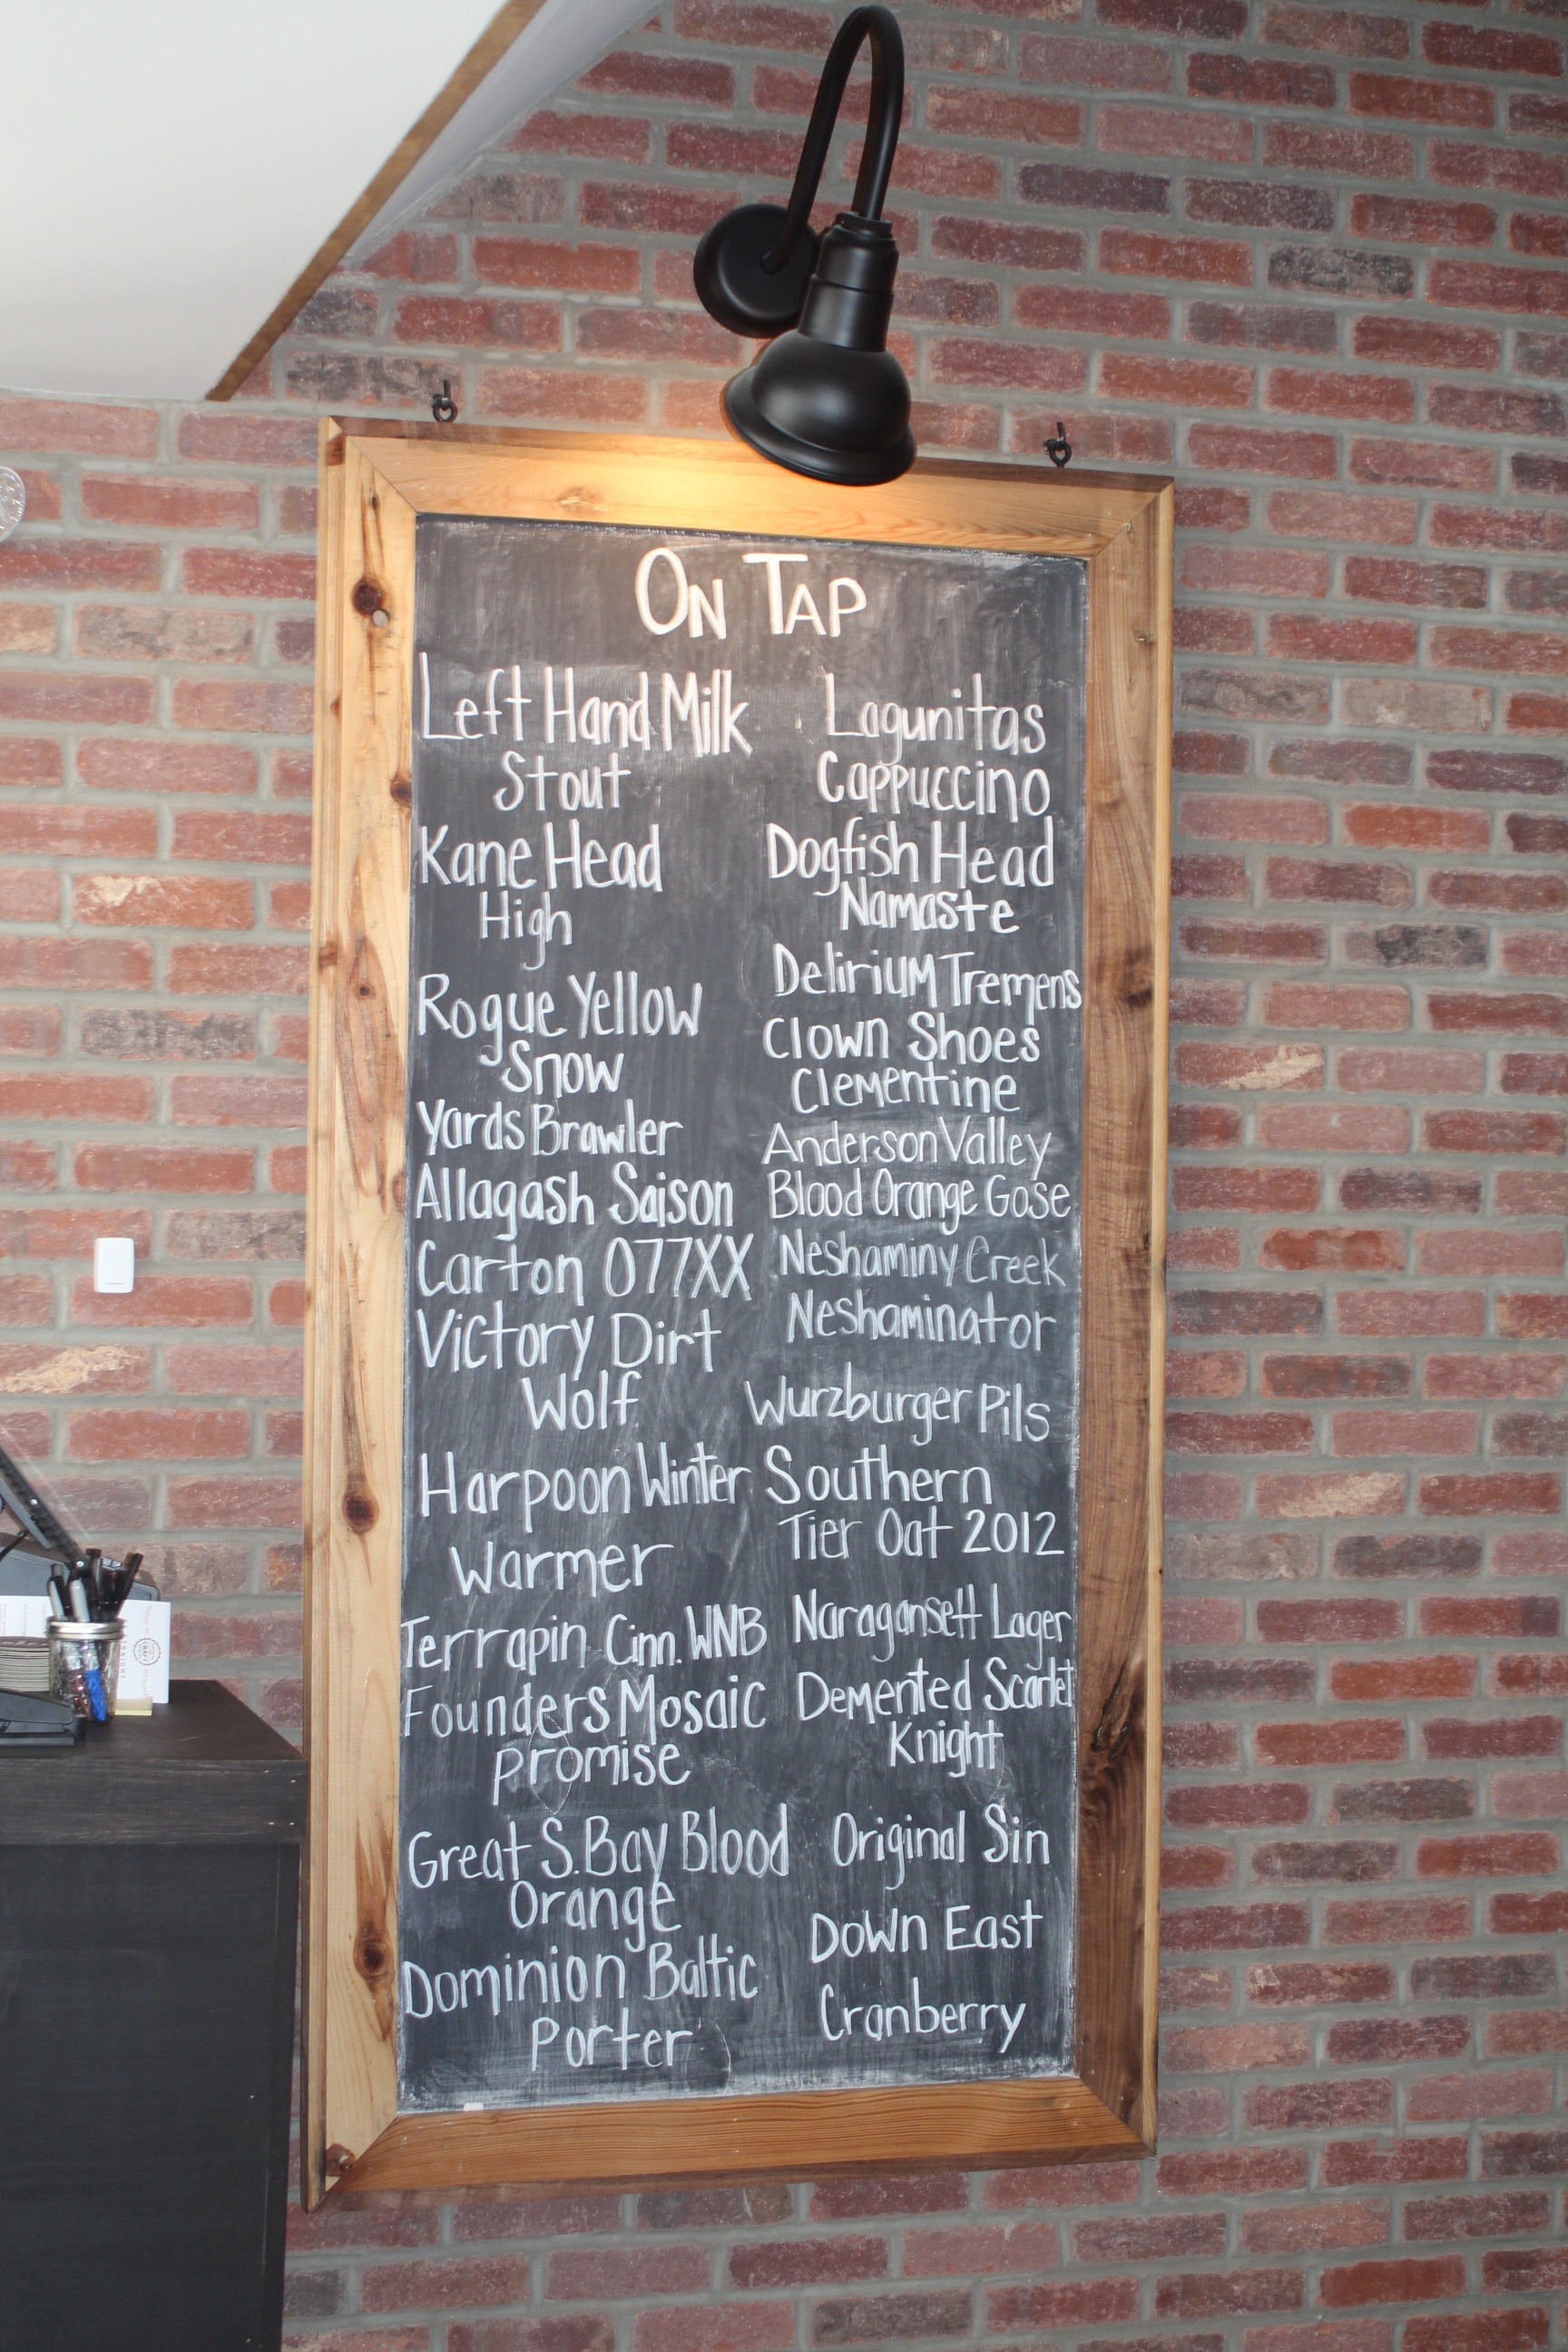 On Tap
Left Hand Milk
Stout
Kane Head
High
Rogue Yellow
Snow
Yards Brawler
Allagash Saison
Carton 077XX
Victory Dirt
Wolf
Harpoon Winter
Warmer
Terrapin Cinn. WNB
Founders Mosaic
Promise
Great S. Bay Blood
Orange
Dominion Baltic
Porter
Lagunitas
Cappuccino
Dogfish Head
Namaste
Delirium Tremens
Clown Shoes
Clementine
Anderson Valley
Blood Orange Gose
Neshaminy Creek
Neshaminator
Wurzburger Pils
Southern
Tier Oat 2012
Naragansett Lager
Demented Scarlet
Knight
Original Sin
Down East
Cranberry